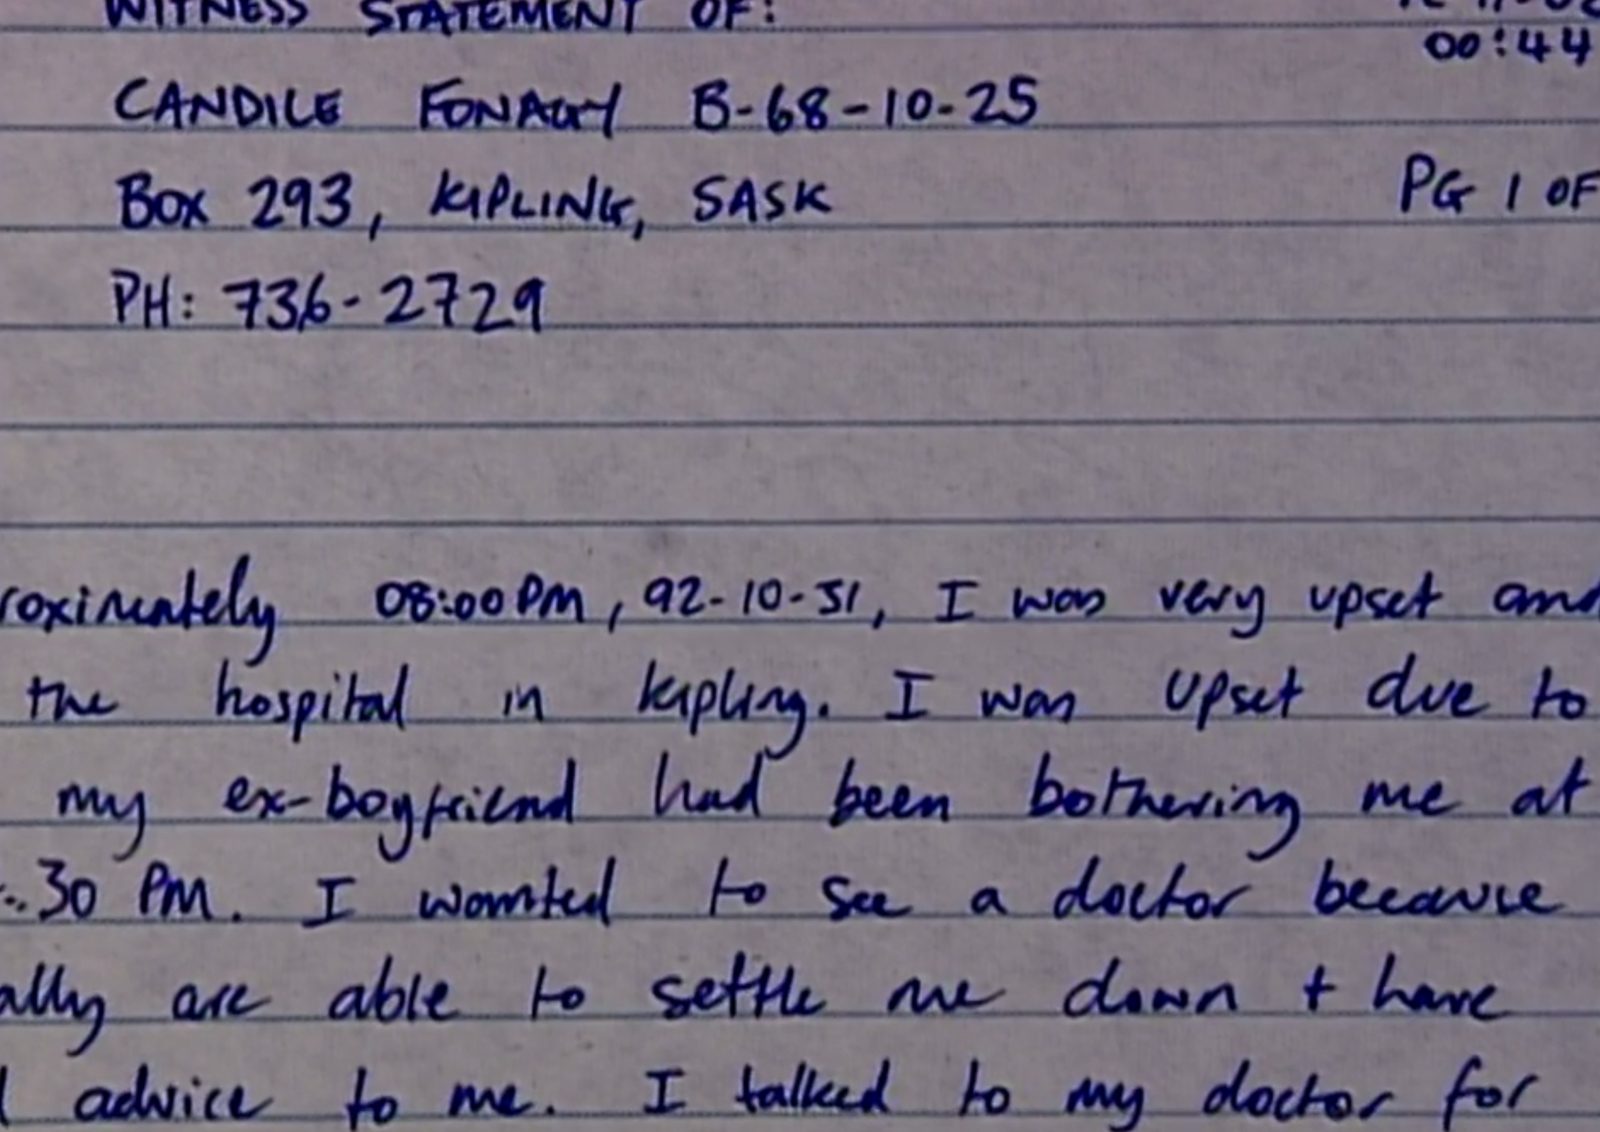 WITNESS STATEMENT OF:
00:44
CANDICE FONAGY B-68-10-25
BOX 293, KIPLING, SASK
PG 1 OF
PH: 736-2729
roximately 08:00 PM, 92-10-31, I was very upset and
the hospital in Kipling. I was upset due to
my ex-boyfriend had been bothering me at
:30 PM. I wanted to see a doctor because
ally are able to settle me down + have
advice to me. I talked to my doctor for